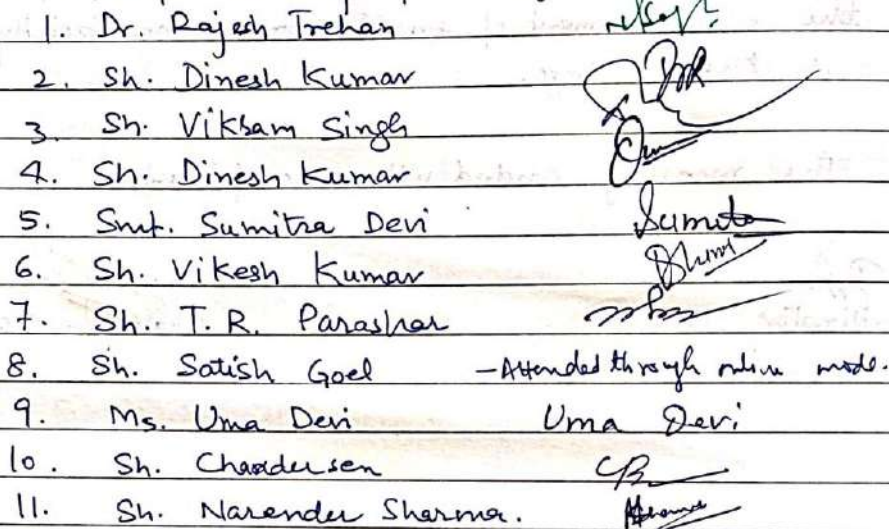 1. Dr. Rajesh Trehan
2. Sh. Dinesh Kumar
3. Sh. Vikram Singh
4. Sh. Dinesh Kumar
5. Smt. Sumitra Devi Sumitra
6. Sh. Vikesh Kumar
7. Sh. T. R. Parashar
8. Sh. Satish Goel - Attended through online mode.
9. Ms. Uma Devi Uma Devi
10. Sh. Chandersen
11. Sh. Narender Sharma.